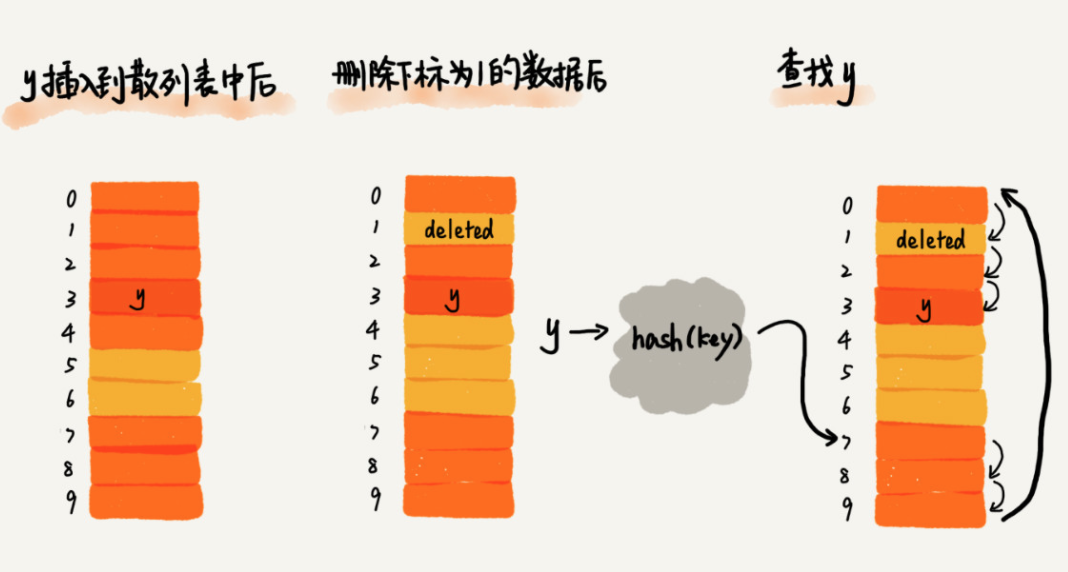 y插入到散列表中后
0
1
2
3 y
4
5
6
7
8
9
删除下标为1的数据后
0
1 deleted
2
3 y
4
5
6
7
8
9
查找y
y
hash(key)
0
1 deleted
2
3 y
4
5
6
7
8
9